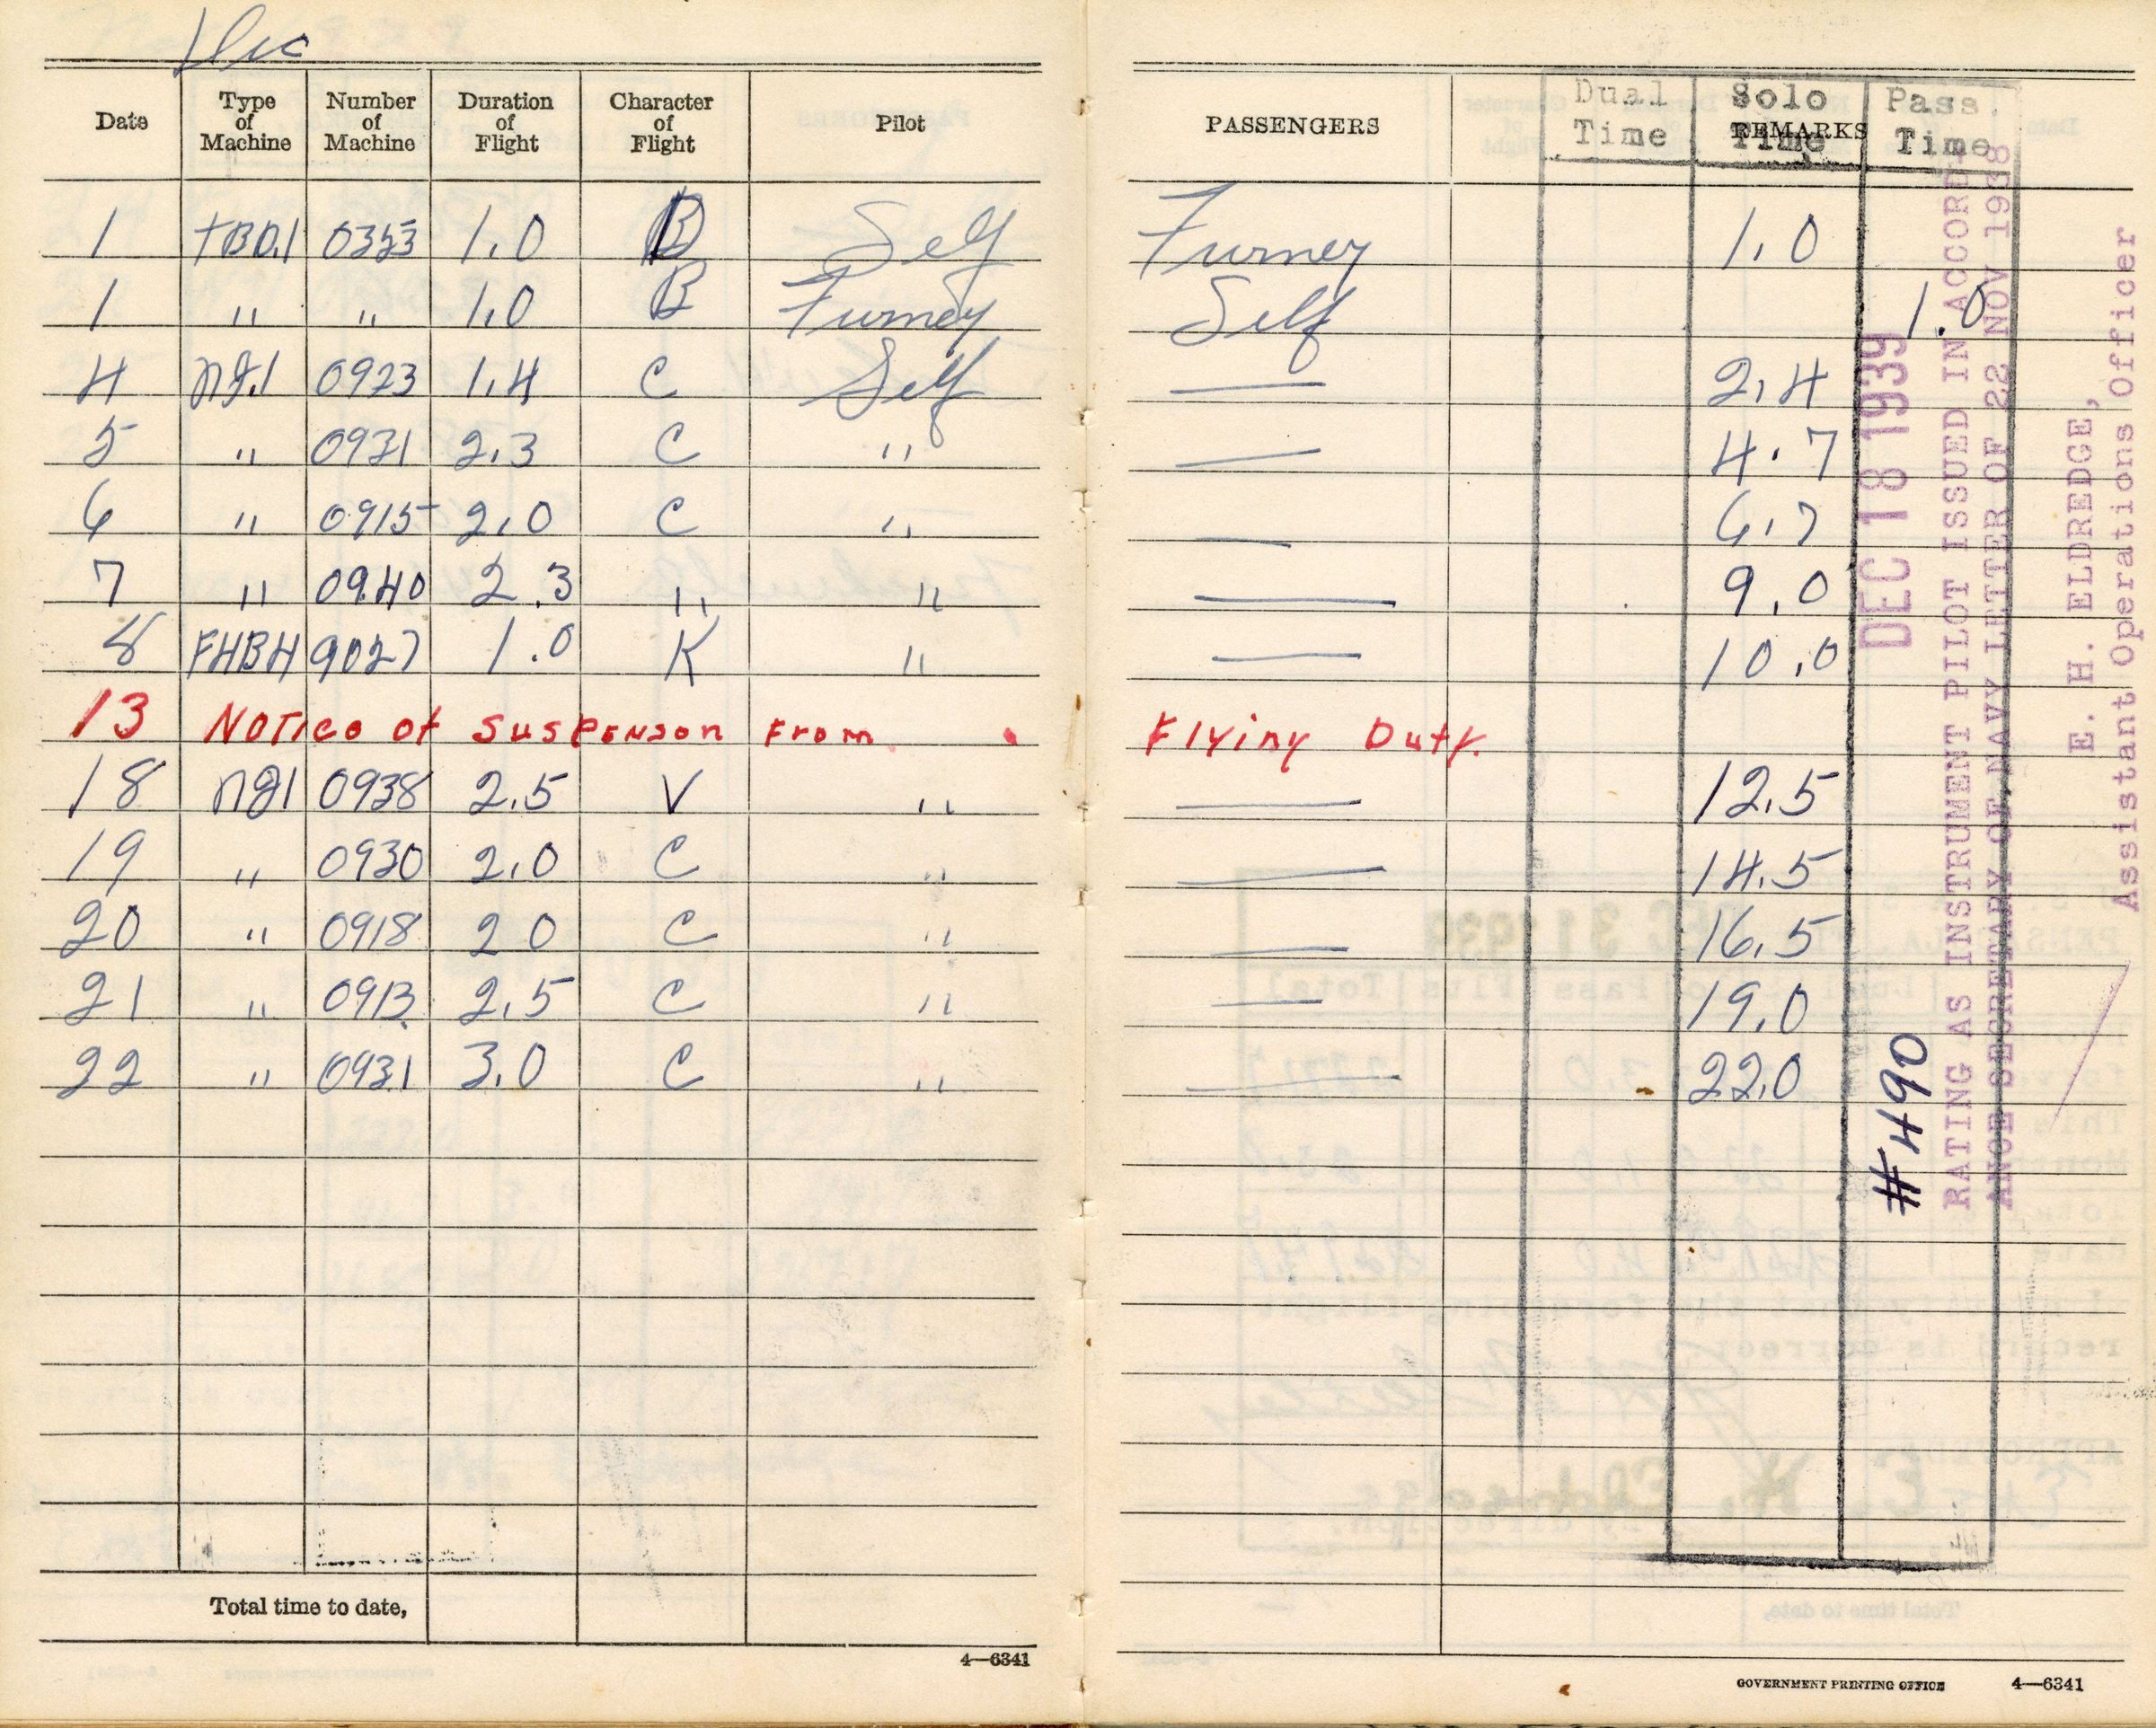 Dec
Date Type of Machine Number of Machine Duration of Flight Character of Flight Pilot PASSENGERS REMARKS
Dual Time Solo Time Pass. Time
1 TBD.1 0353 1.0 B Self Furney 1.0
1 " " 1.0 B Furney Self 1.0
4 NJ.1 0923 1.4 C Self — 2.4
5 " 0931 2.3 C " — 4.7
6 " 0915 2.0 C " — 6.7
7 " 0940 2.3 " " — 9.0
8 F4B4 9027 1.0 K " — 10.0
13 Notice of Suspenson From Flying Duty.
18 NJ1 0938 2.5 V " — 12.5
19 " 0930 2.0 C " — 14.5
20 " 0918 2 0 C " — 16.5
21 " 0913 2.5 C " — 19.0
22 " 0931 3.0 C " — 22.0
Total time to date,
4—6341
GOVERNMENT PRINTING OFFICE 4—6341
#490
DEC 18 1939
RATING AS INSTRUMENT PILOT ISSUED IN ACCORD-
ANCE SECRETARY OF NAVY LETTER OF 22 NOV 1938
E. H. ELDREDGE,
Assistant Operations Officer